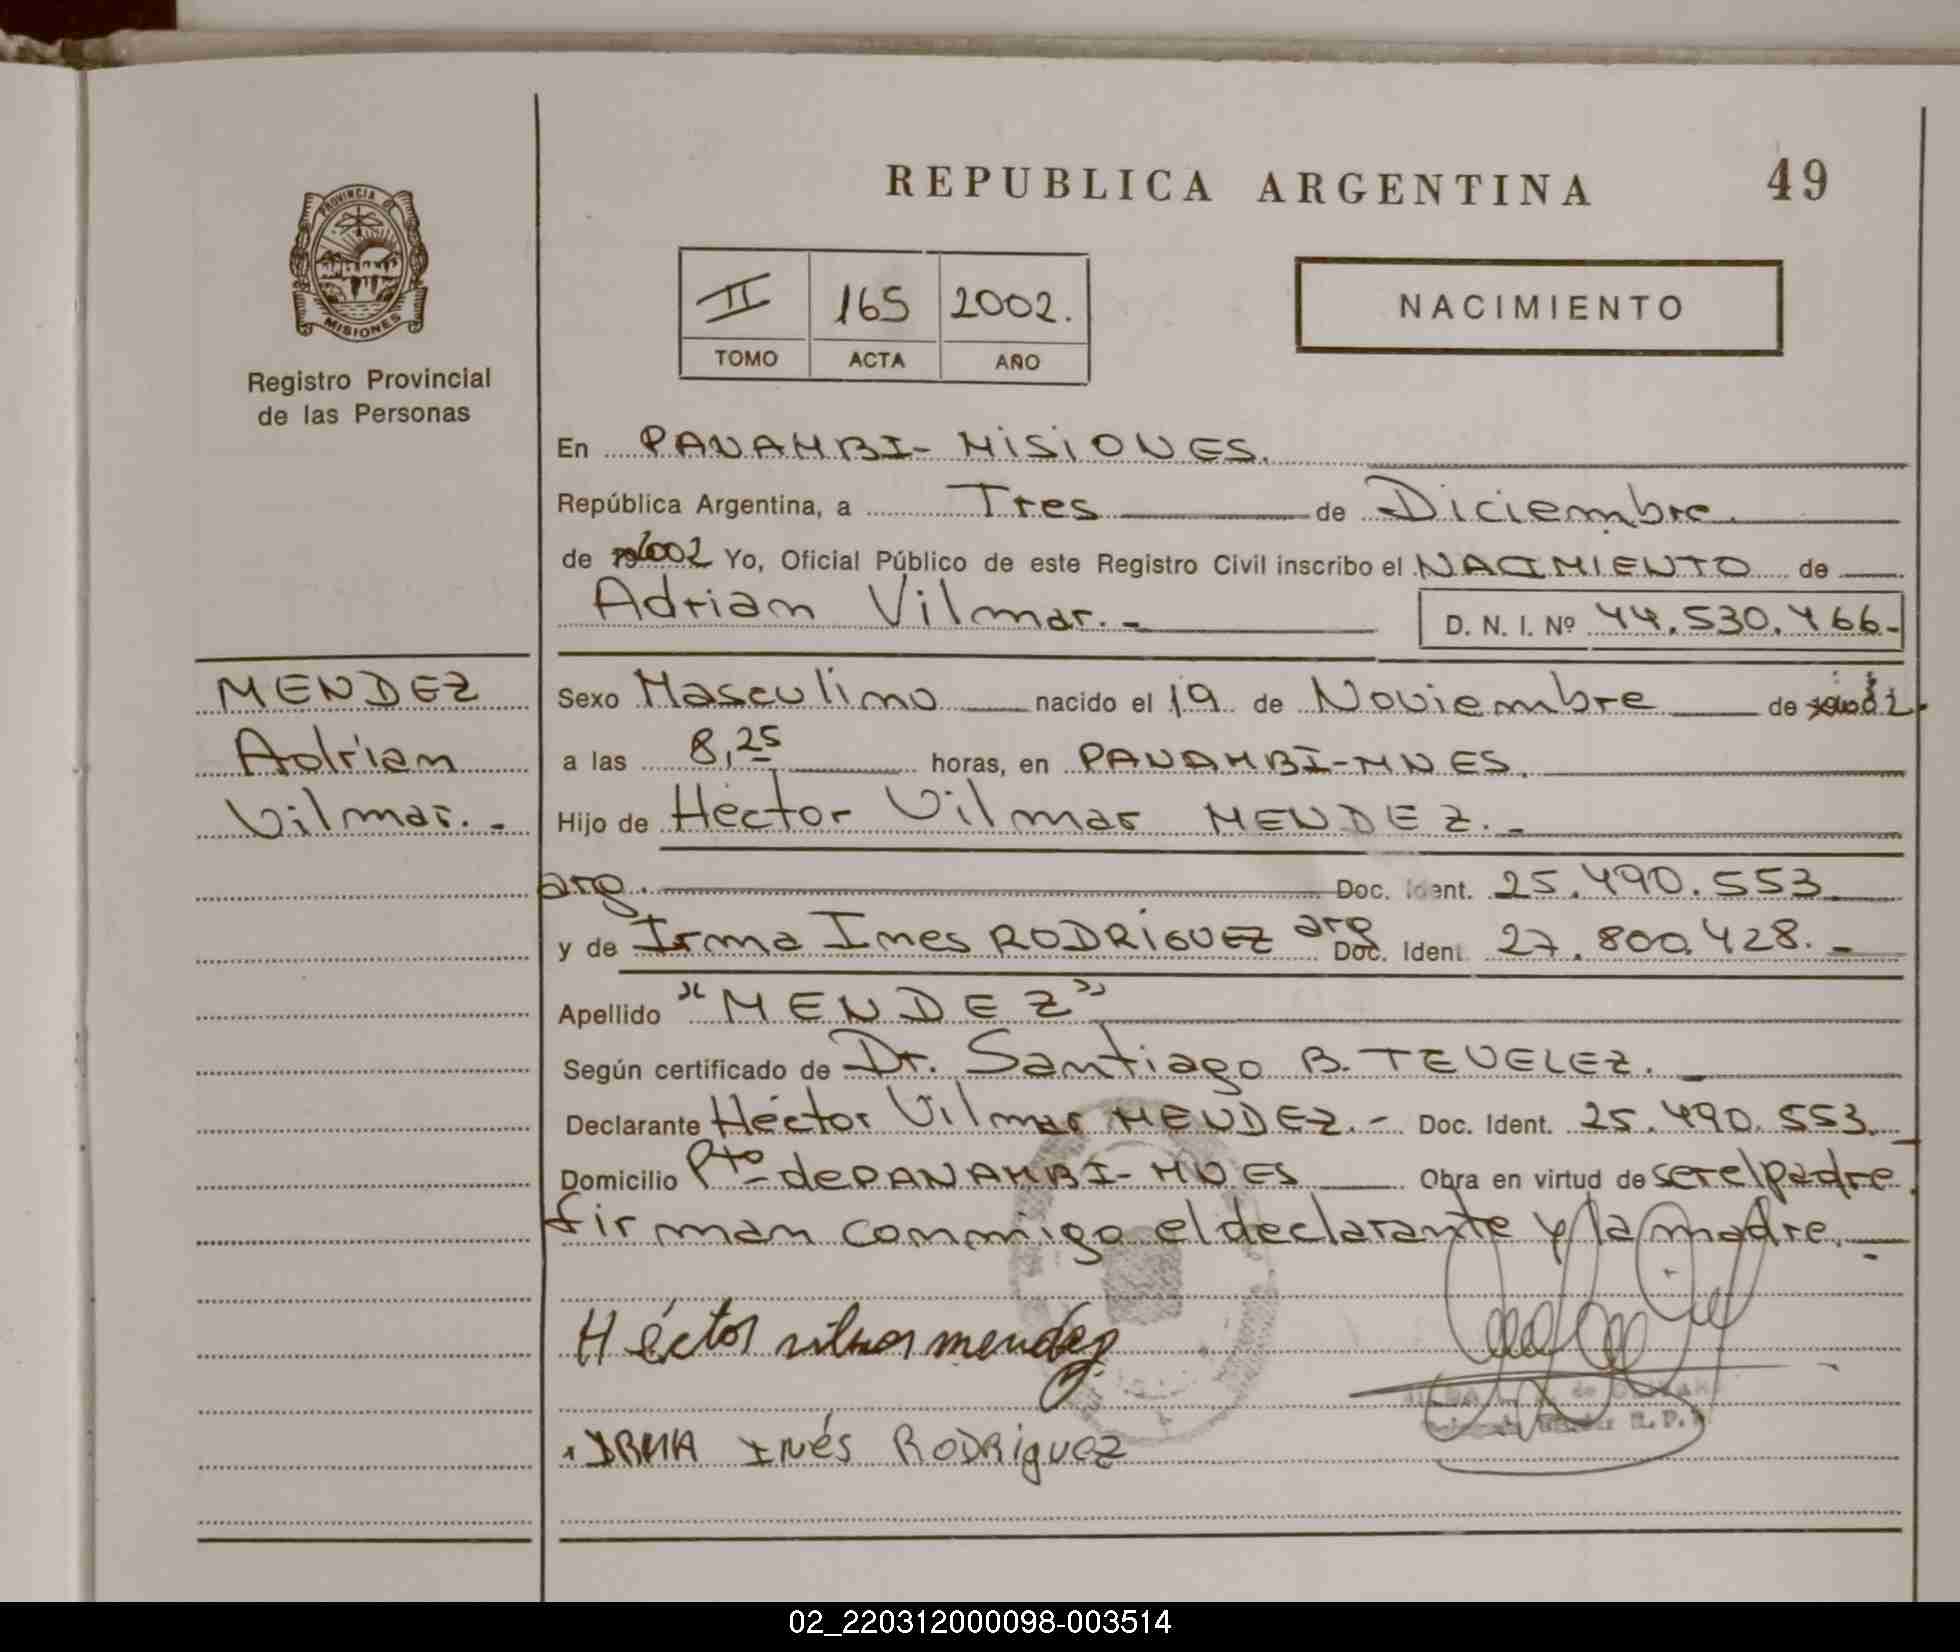 REPUBLICA ARGENTINA
49
PROVINCIA DE
MISIONES
Registro Provincial
de las Personas
II 165 2002.
TOMO ACTA AÑO
NACIMIENTO
En PANAMBI-MISIONES.
República Argentina, a Tres de Diciembre.
de 2002 Yo, Oficial Público de este Registro Civil inscribo el NACIMIENTO de
Adrian Vilmar.-
D. N. I. Nº 44.530.466-
MENDEZ
Adrian
Vilmar.-
Sexo Masculino nacido el 19 de Noviembre de
a las 8,25 horas, en PANAMBI-MNES.
Hijo de Héctor Vilmar MENDEZ.-
arg. Doc. Ident. 25.490.553
y de Irma Ines RODRIGUEZ arg Doc. Ident. 27.800.428.-
Apellido "MENDEZ"
Según certificado de Dr. Santiago B. TEVELEZ.
Declarante Héctor Vilmar MENDEZ.- Doc. Ident. 25.490.553.
Domicilio Pto de PANAMBI-MNES Obra en virtud de ser el padre.
firman conmigo el declarante y la madre.-
Héctor vilmar mendez
IRMA INés RODRiguez
02_220312000098-003514